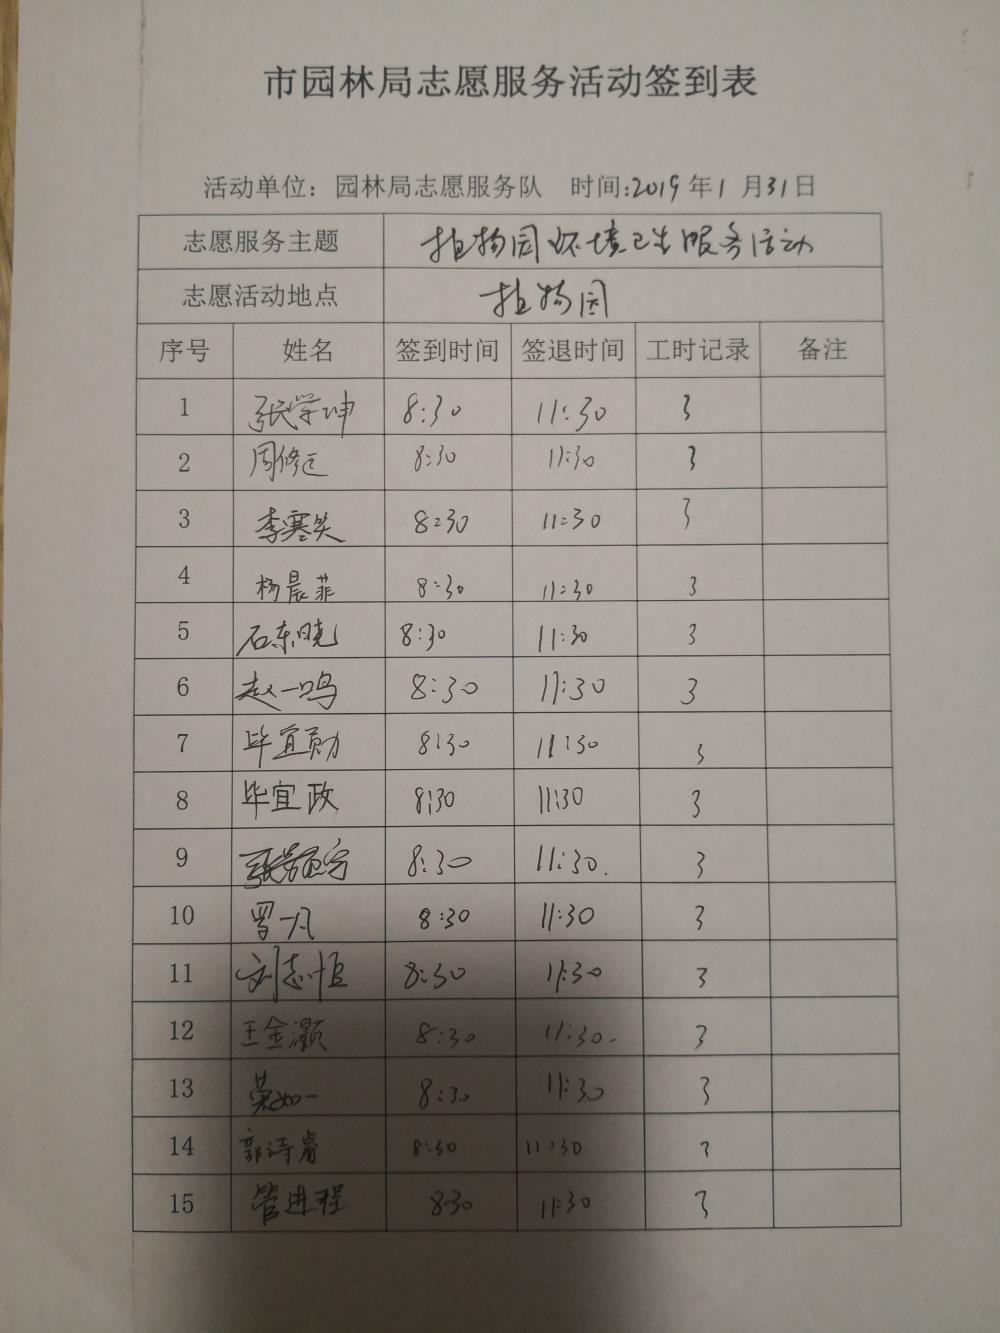 市园林局志愿服务活动签到表
活动单位：园林局志愿服务队 时间:2019年1月31日
志愿服务主题 植物园环境卫生服务活动
志愿活动地点 植物园
序号 姓名 签到时间 签退时间 工时记录 备注
1 张学坤 8:30 11:30 3
2 周修 8:30 11:30 3
3 李寒笑 8:30 11:30 3
4 杨晨菲 8:30 11:30 3
5 石东晓 8:30 11:30 3
6 赵一鸣 8:30 11:30 3
7 毕宜勋 8:30 11:30 3
8 毕宜政 8:30 11:30 3
9 张 8:30 11:30. 3
10 罗一凡 8:30 11:30 3
11 刘志恒 8:30 11:30 3
12 王金灏 8:30 11:30. 3
13 如一 8:30 11:30 3
14 郭诗睿 8:30 11:30 3
15 管进程 8:30 11:30 3